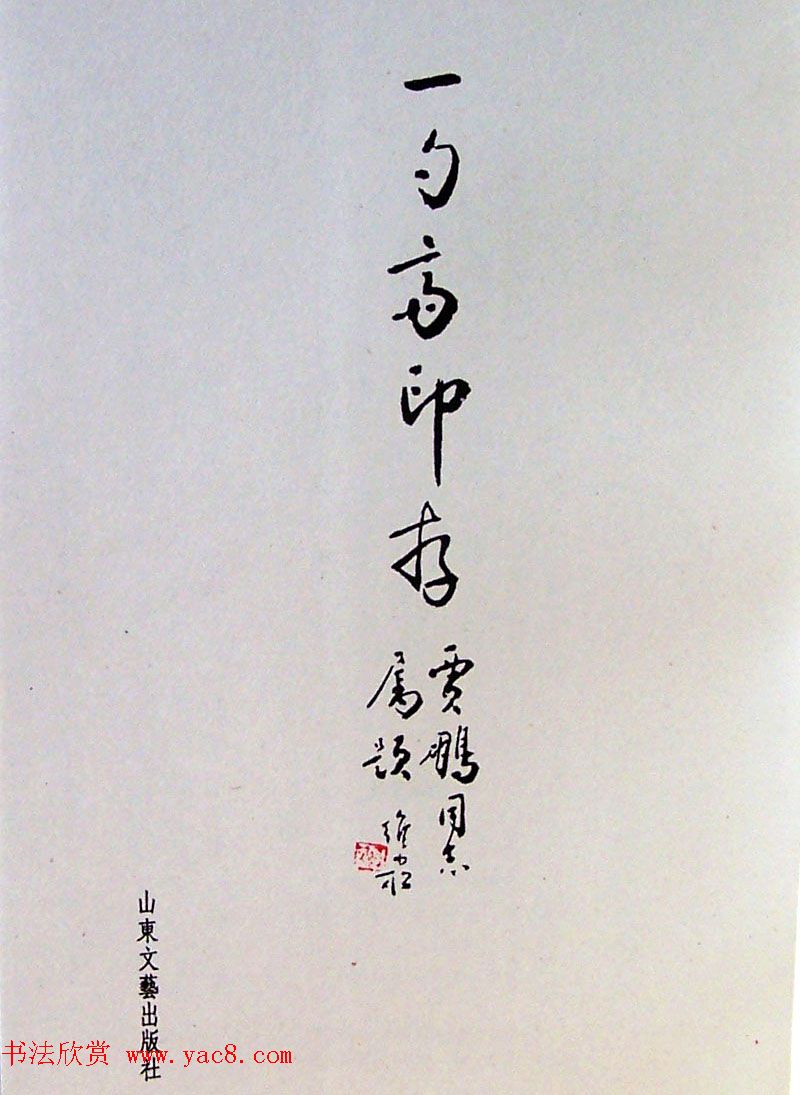 一勺斋印存
贾鹏同志
属题
山東文藝出版社
书法欣赏 www.yac8.com